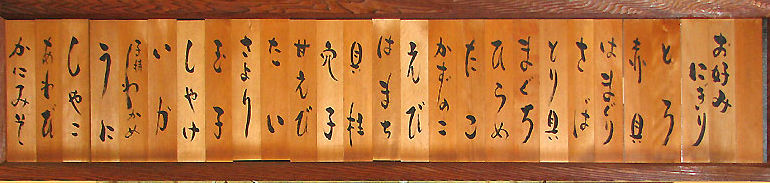 お好み
にぎり
とろ
赤貝
はまぐり
さば
とり貝
まぐろ
ひらめ
たこ
かずのこ
えび
はまち
貝柱
穴子
甘えび
たい
さより
玉子
しゃけ
いか
わかめ
うに
しゃこ
あわび
かにみそ